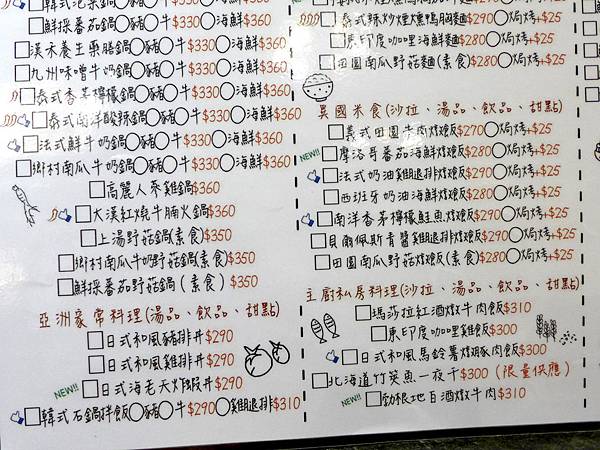 韓式泡菜鍋〇豬〇牛$330〇海鮮$360
鮮採番茄鍋〇豬〇牛$330〇海鮮$360
漢禾養生藥膳鍋〇豬〇牛$330〇海鮮$360
九州味噌牛奶鍋〇豬〇牛$330〇海鮮$360
泰式香茅檸檬鍋〇豬〇牛$330〇海鮮$360
泰式南洋酸辣鍋〇豬〇牛$330〇海鮮$360
法式鮮牛奶鍋〇豬〇牛$330〇海鮮$360
鄉村南瓜牛奶鍋〇豬〇牛$330〇海鮮$360
高麗人參雞鍋$360
大漢紅燒牛腩火鍋$360
上湯野菇鍋(素食)$350
鄉村南瓜牛奶野菇鍋(素食)$350
鮮採番茄野菇鍋(素食)$350
亞洲家常料理(湯品、飲品、甜點)
日式和風豬排丼$290
日式和風雞排丼$290
NEW!! 日式海老天炸蝦丼$290
韓式石鍋拌飯〇豬〇牛$290〇雞腿排$310
泰式辣炒煙燻鴨胸麵$290〇焗烤+$25
東印度咖哩海鮮麵$280〇焗烤+$25
田園南瓜野菇麵(素食)$280〇焗烤+$25
異國米食(沙拉、湯品、飲品、甜點)
義式田園牛肉燉飯$270〇焗烤+$25
NEW!! 摩洛哥番茄海鮮燉飯$280〇焗烤+$25
法式奶油雞腿排燉飯$290〇焗烤+$25
西班牙奶油海鮮燉飯$290〇焗烤+$25
南洋香茅檸檬鮭魚燉飯$290〇焗烤+$25
貝爾佩斯青醬雞腿排燉飯$290〇焗烤+$25
田園南瓜野菇燉飯(素食)$280〇焗烤+$25
主廚私房料理(沙拉、湯品、飲品、甜點)
瑪莎拉紅酒燉牛肉飯$310
東印度咖哩雞飯$300
日式和風馬鈴薯燉豬肉飯$300
北海道竹筴魚一夜干$300(限量供應)
NEW!! 勃根地白酒燉牛肉$310